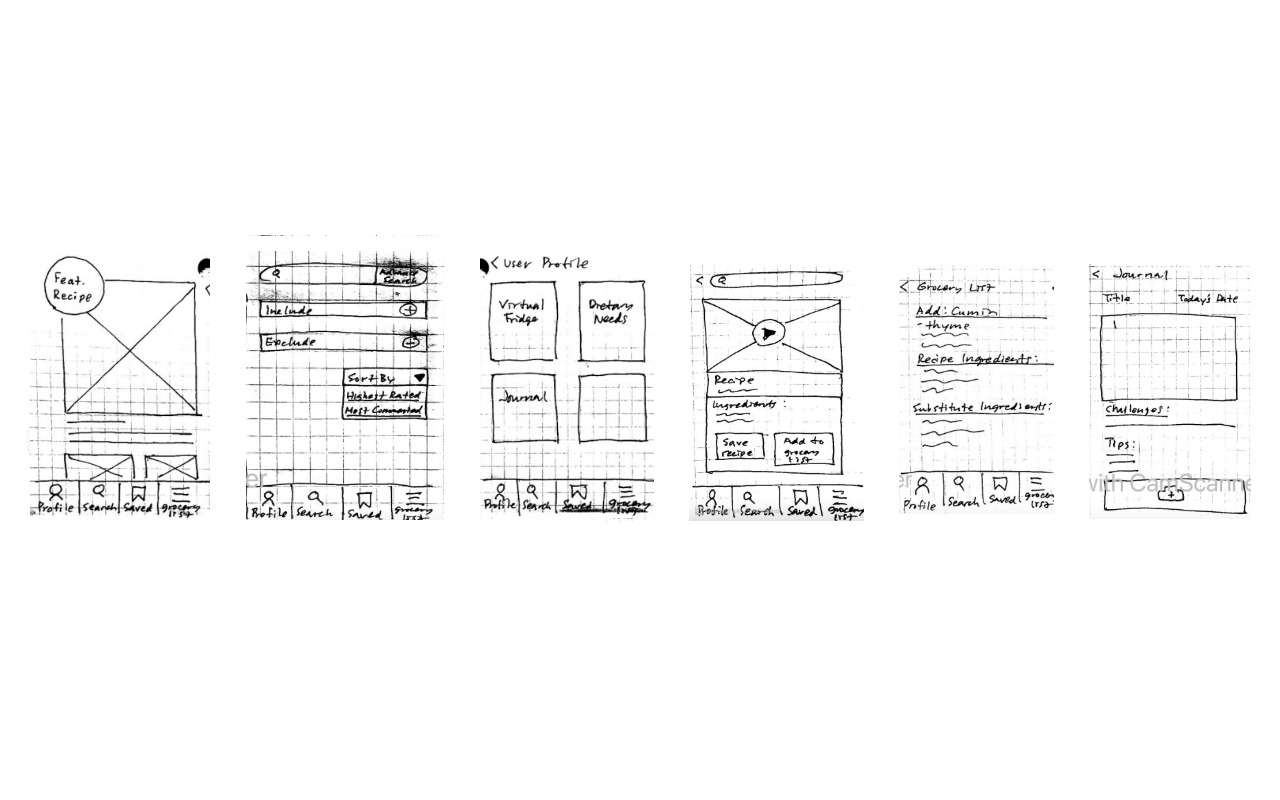 Feat.
Recipe
Profile
Search
Saved
grocery
list
Advance
Search
Include
Exclude
Sort By
Highest Rated
Most Commented
Profile
Search
Saved
grocery
list
< User Profile
Virtual
Fridge
Dietary
Needs
Journal
Profile
Search
Saved
grocery
list
Recipe
Ingredients :
Save
recipe
Add to
grocery
list
Profile
Search
Saved
grocery
list
< Grocery List
Add: Cumin
- thyme
Recipe Ingredients :
Substitute Ingredients :
Profile
Search
Saved
grocery
list
< Journal
Title
Today's Date
Challenges :
Tips :
with CamScanne